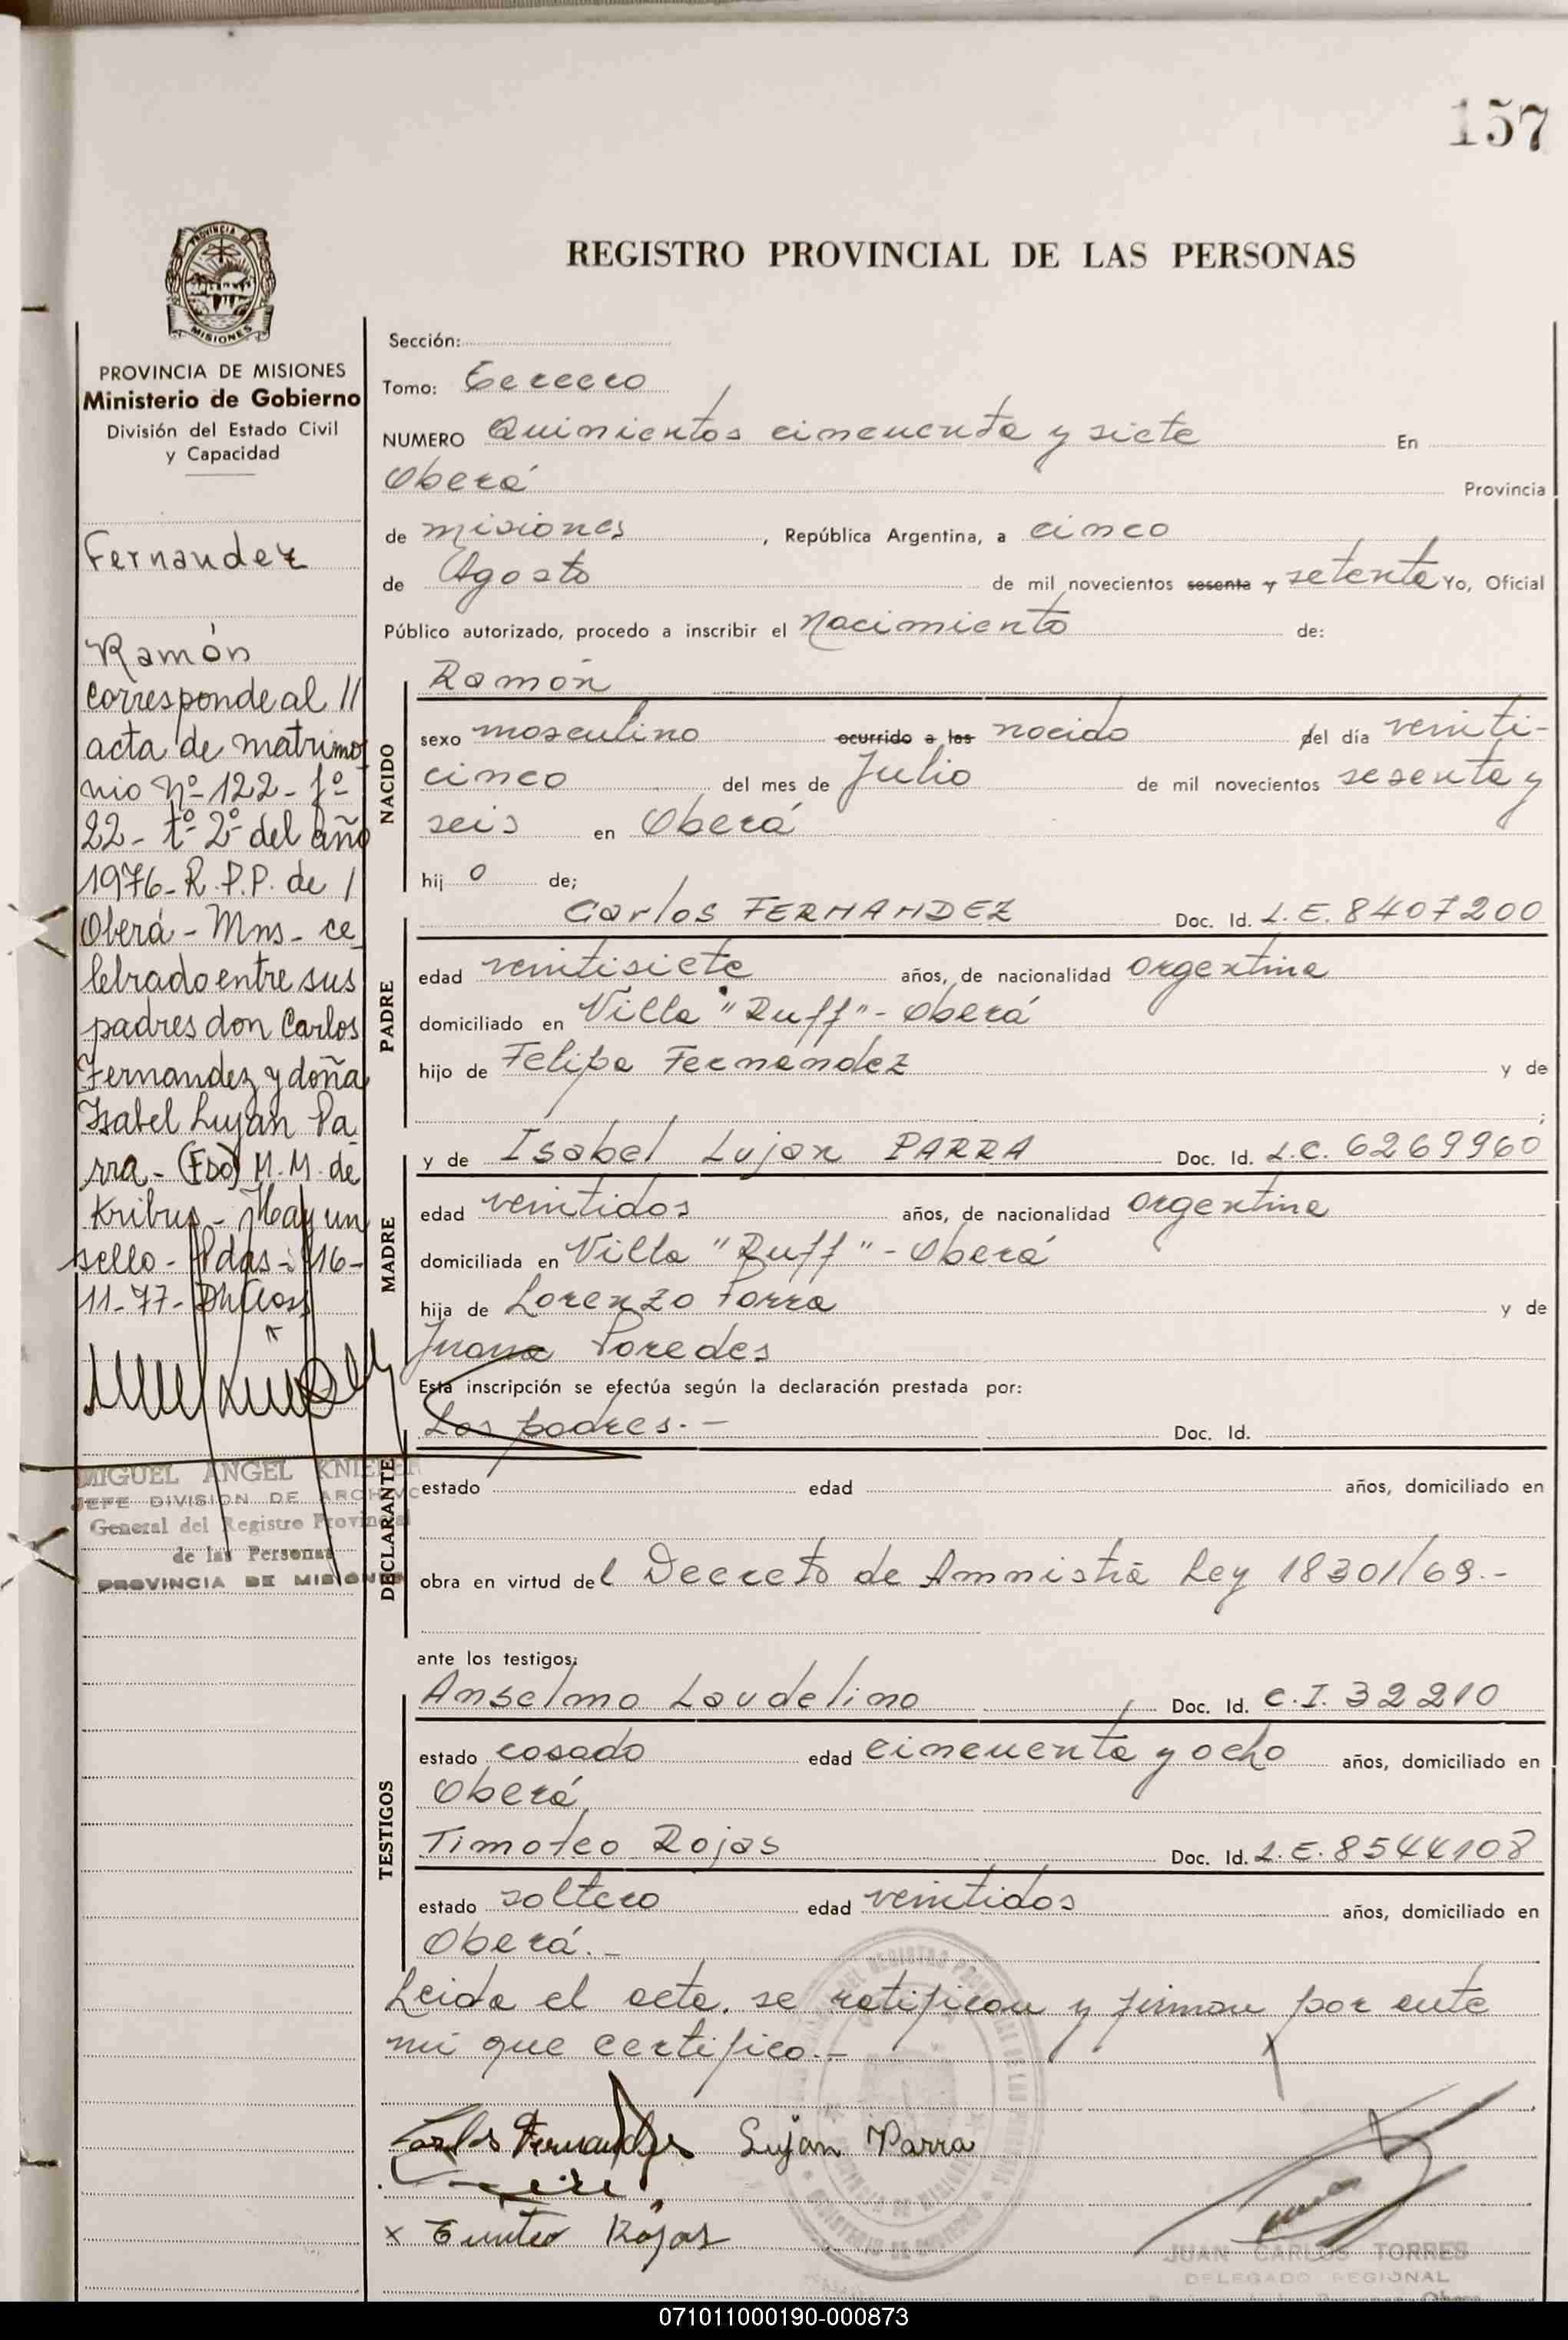 157
REGISTRO PROVINCIAL DE LAS PERSONAS
PROVINCIA DE MISIONES
Ministerio de Gobierno
División del Estado Civil
y Capacidad
Fernandez
Ramón
corresponde al //
acta de matrimo
nio Nº 122 - fº
22 - tº 2º del año
1976 - R. P. P. de /
Oberá - Mns - ce
lebrado entre sus
padres don Carlos
Fernandez y doña
Isabel Lujan Pa
rra - (Fdo) M. M. de
Kribus - Hay un
sello - Pdas - 16 -
11 - 77 -
MIGUEL ANGEL
JEFE DIVISION DE ARCHIVO
General del Registro Provincial
de las Personas
PROVINCIA DE MISIONES
Sección:
Tomo: Tercero
NUMERO Quinientos cincuenta y siete En
Oberá Provincia
de Misiones, República Argentina, a cinco
de Agosto de mil novecientos sesenta y setenta Yo, Oficial
Público autorizado, procedo a inscribir el Nacimiento de:
Ramón
NACIDO
sexo masculino ocurrido a las nacido del día veinti-
cinco del mes de Julio de mil novecientos sesenta y
seis en Oberá
hijo de;
Carlos FERNANDEZ Doc. Id. L.E. 8407200
PADRE
edad veintisiete años, de nacionalidad argentina
domiciliado en Villa "Ruff" - Oberá
hijo de Felipa Fernandez y de
y de Isabel Lujan PARRA Doc. Id. L.C. 6269960
MADRE
edad veintidos años, de nacionalidad argentina
domiciliada en Villa "Ruff" - Oberá
hija de Lorenzo Parra y de
Juana Paredes
Esta inscripción se efectúa según la declaración prestada por:
Los padres.- Doc. Id.
DECLARANTE
estado edad años, domiciliado en
obra en virtud del Decreto de Amnistía Ley 18301/69.-
ante los testigos:
Anselmo Laudelino Doc. Id. C.I. 32210
TESTIGOS
estado casado edad cincuenta y ocho años, domiciliado en
Oberá
Timoteo Rojas Doc. Id. L.E. 8544108
estado soltero edad veintidos años, domiciliado en
Oberá.-
Leida el acta, se ratifican y firman por ante
mi que certifico.-
Carlos Fernandez Lujan Parra
x Rojas
JUAN CARLOS TORRES
DELEGADO REGIONAL
071011000190-000873